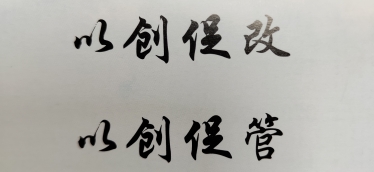 以创促改
以创促管